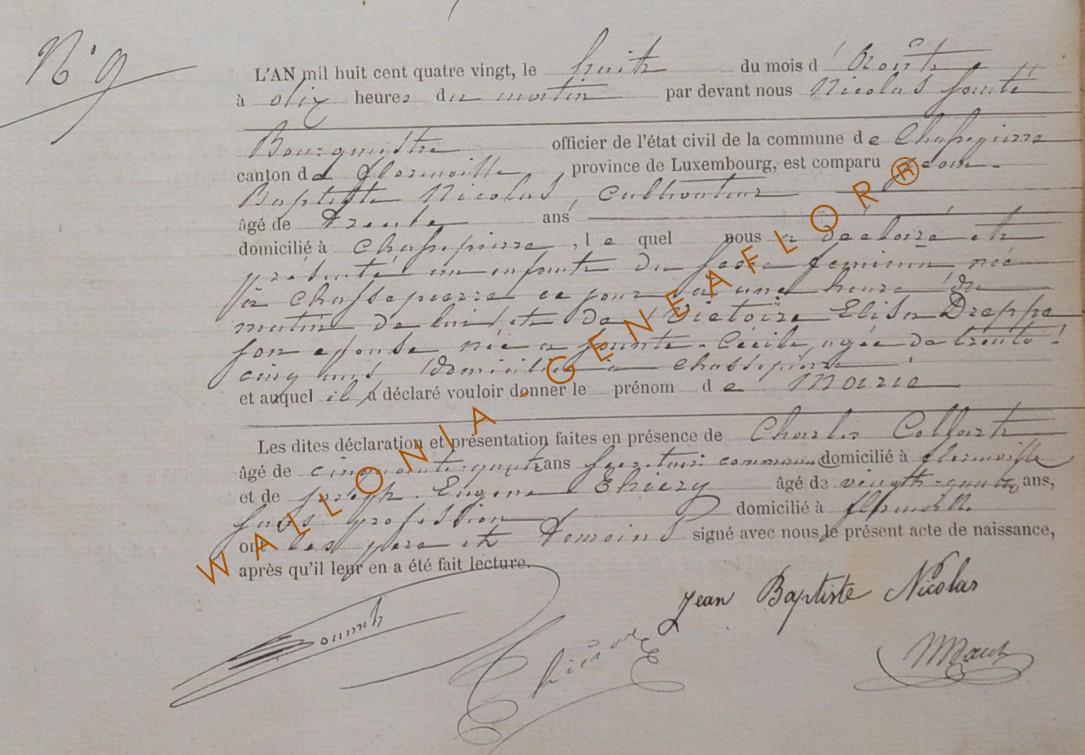 N° 9
L'AN mil huit cent quatre vingt, le huit du mois d'Août
à dix heures du matin par devant nous Nicolas
Bourgmestre officier de l'état civil de la commune de Chassepierre
canton de Florenville province de Luxembourg, est comparu Jean-
Baptiste Nicolas, cultivateur
âgé de trente ans
domicilié à Chassepierre, lequel nous a déclaré et
présenté un enfant du sexe féminin né
à Chassepierre ce jour à une heure du
matin de lui et de Victoire Elisa Dreppe
son épouse, née à Sainte-Cécile, agée de trente-
cinq ans domiciliée à Chassepierre
et auquel il a déclaré vouloir donner le prénom de Marie
Les dites déclaration et présentation faites en présence de Charles Collart
âgé de cinquante-quatre ans secrétaire communal domicilié à Florenville
et de Joseph Eugène Thiéry âgé de vingt-quatre ans,
sans profession domicilié à Florenville
ont les père et témoins signé avec nous le présent acte de naissance,
après qu'il leur en a été fait lecture.
Jean Baptiste Nicolas
WALLONIA - GENEAFLOR®